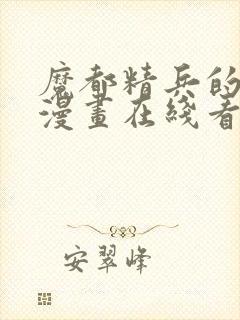 魔都精兵的
漫畫在綫看
安翠峰